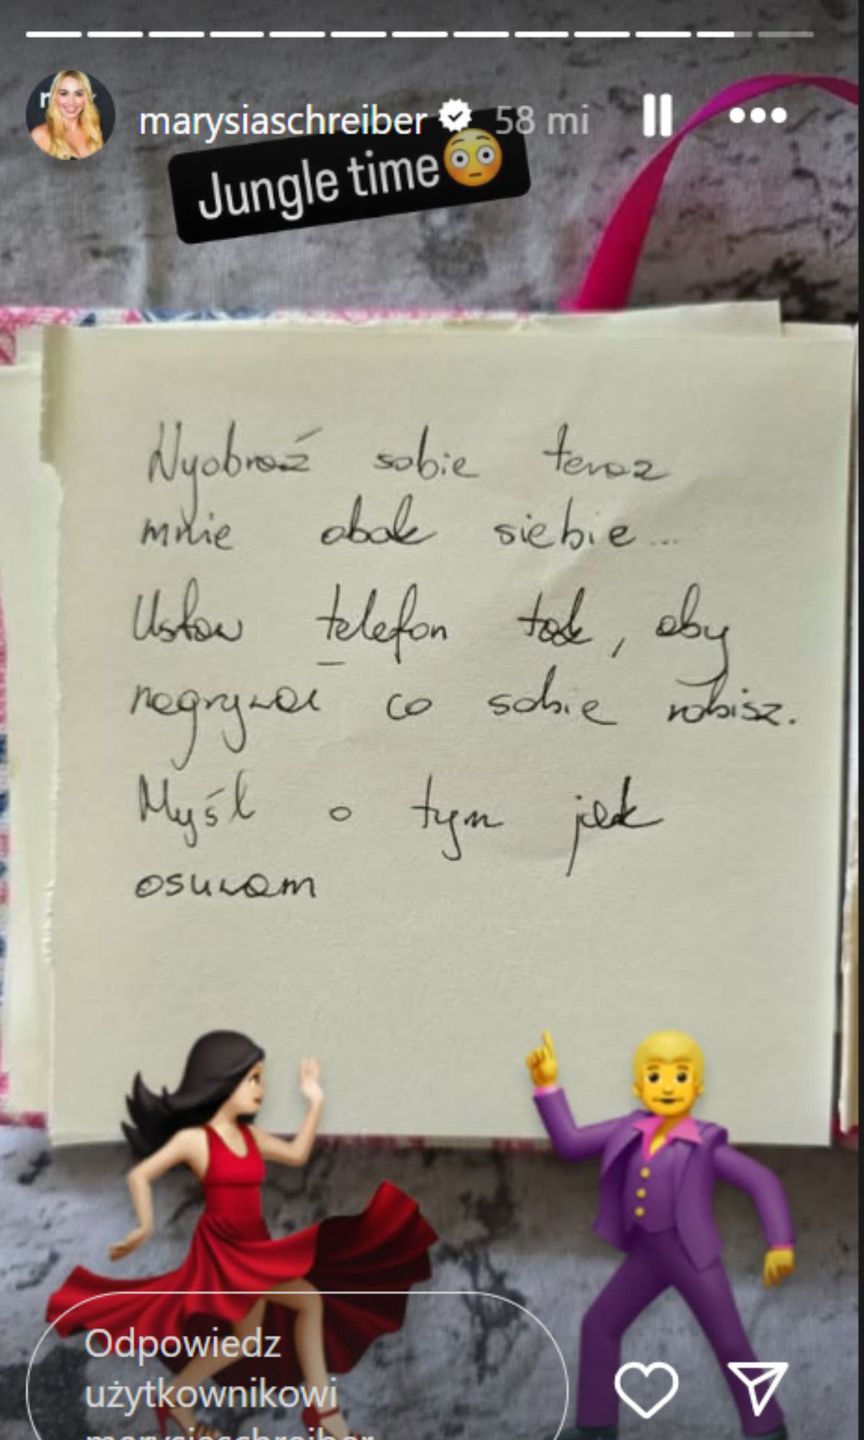 marysiaschreiber 58 mi
Jungle time
Wyobraź sobie teraz
mnie obok siebie...
Ustaw telefon tak, aby
nagrywał co sobie robisz.
Myśl o tym jak
osuwam
Odpowiedz
użytkownikowi
marysiaschreiber